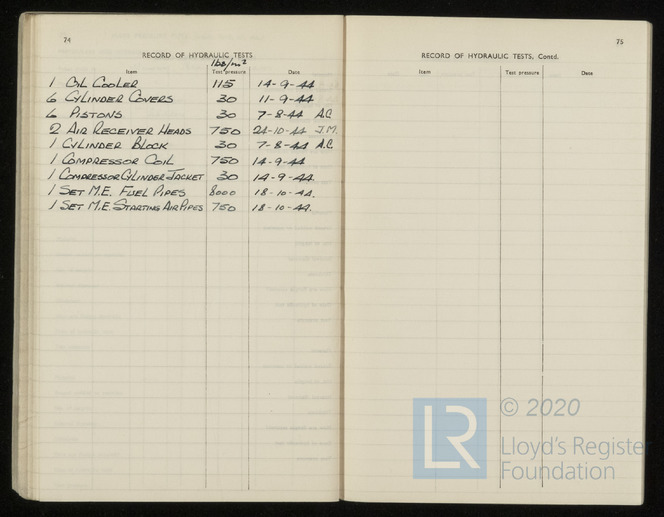 74
RECORD OF HYDRAULIC TESTS
lbs/in²
Item Test pressure Date
1 OIL COOLER 115 14-9-44
6 CYLINDER COVERS 30 11-9-44
6 PISTONS 30 7-8-44 A.C.
2 AIR RECEIVER HEADS 750 24-10-44 J.M.
1 CYLINDER BLOCK 30 7-8-44 A.C.
1 COMPRESSOR COIL 750 14-9-44
1 COMPRESSOR CYLINDER JACKET 30 14-9-44.
1 SET M.E. FUEL PIPES 8000 18-10-44.
1 SET M.E. STARTING AIR PIPES 750 18-10-44.
75
RECORD OF HYDRAULIC TESTS, Contd.
Item Test pressure Date
LR
© 2020
Lloyd's Register
Foundation